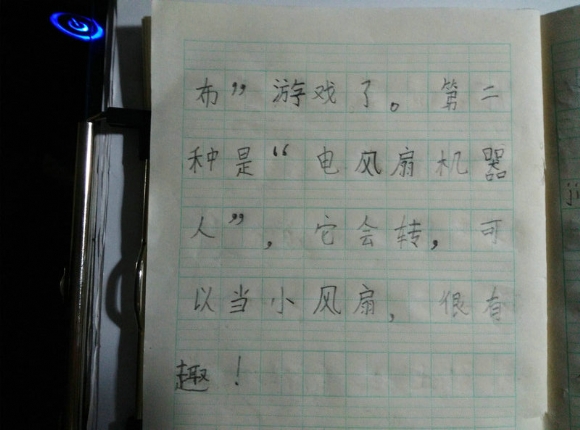 布”游戏了。第二
种是“电风扇机器
人”，它会转，可
以当小风扇，很有
趣！